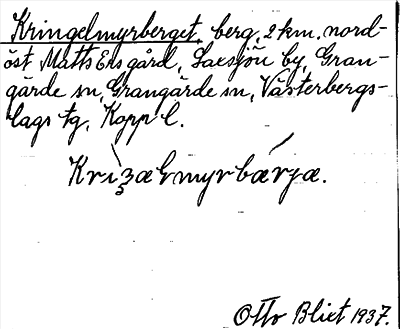 Kringelmyrberget, berg, 2 km. nord-
öst Matts Ers gård, Saxsjön by, Gran-
gärde sn, Grangärde sn, Västerbergs-
lags tg, Kopp l.
Krìʒæɬmyrbǽrjæ.
Otto Blixt 1937.